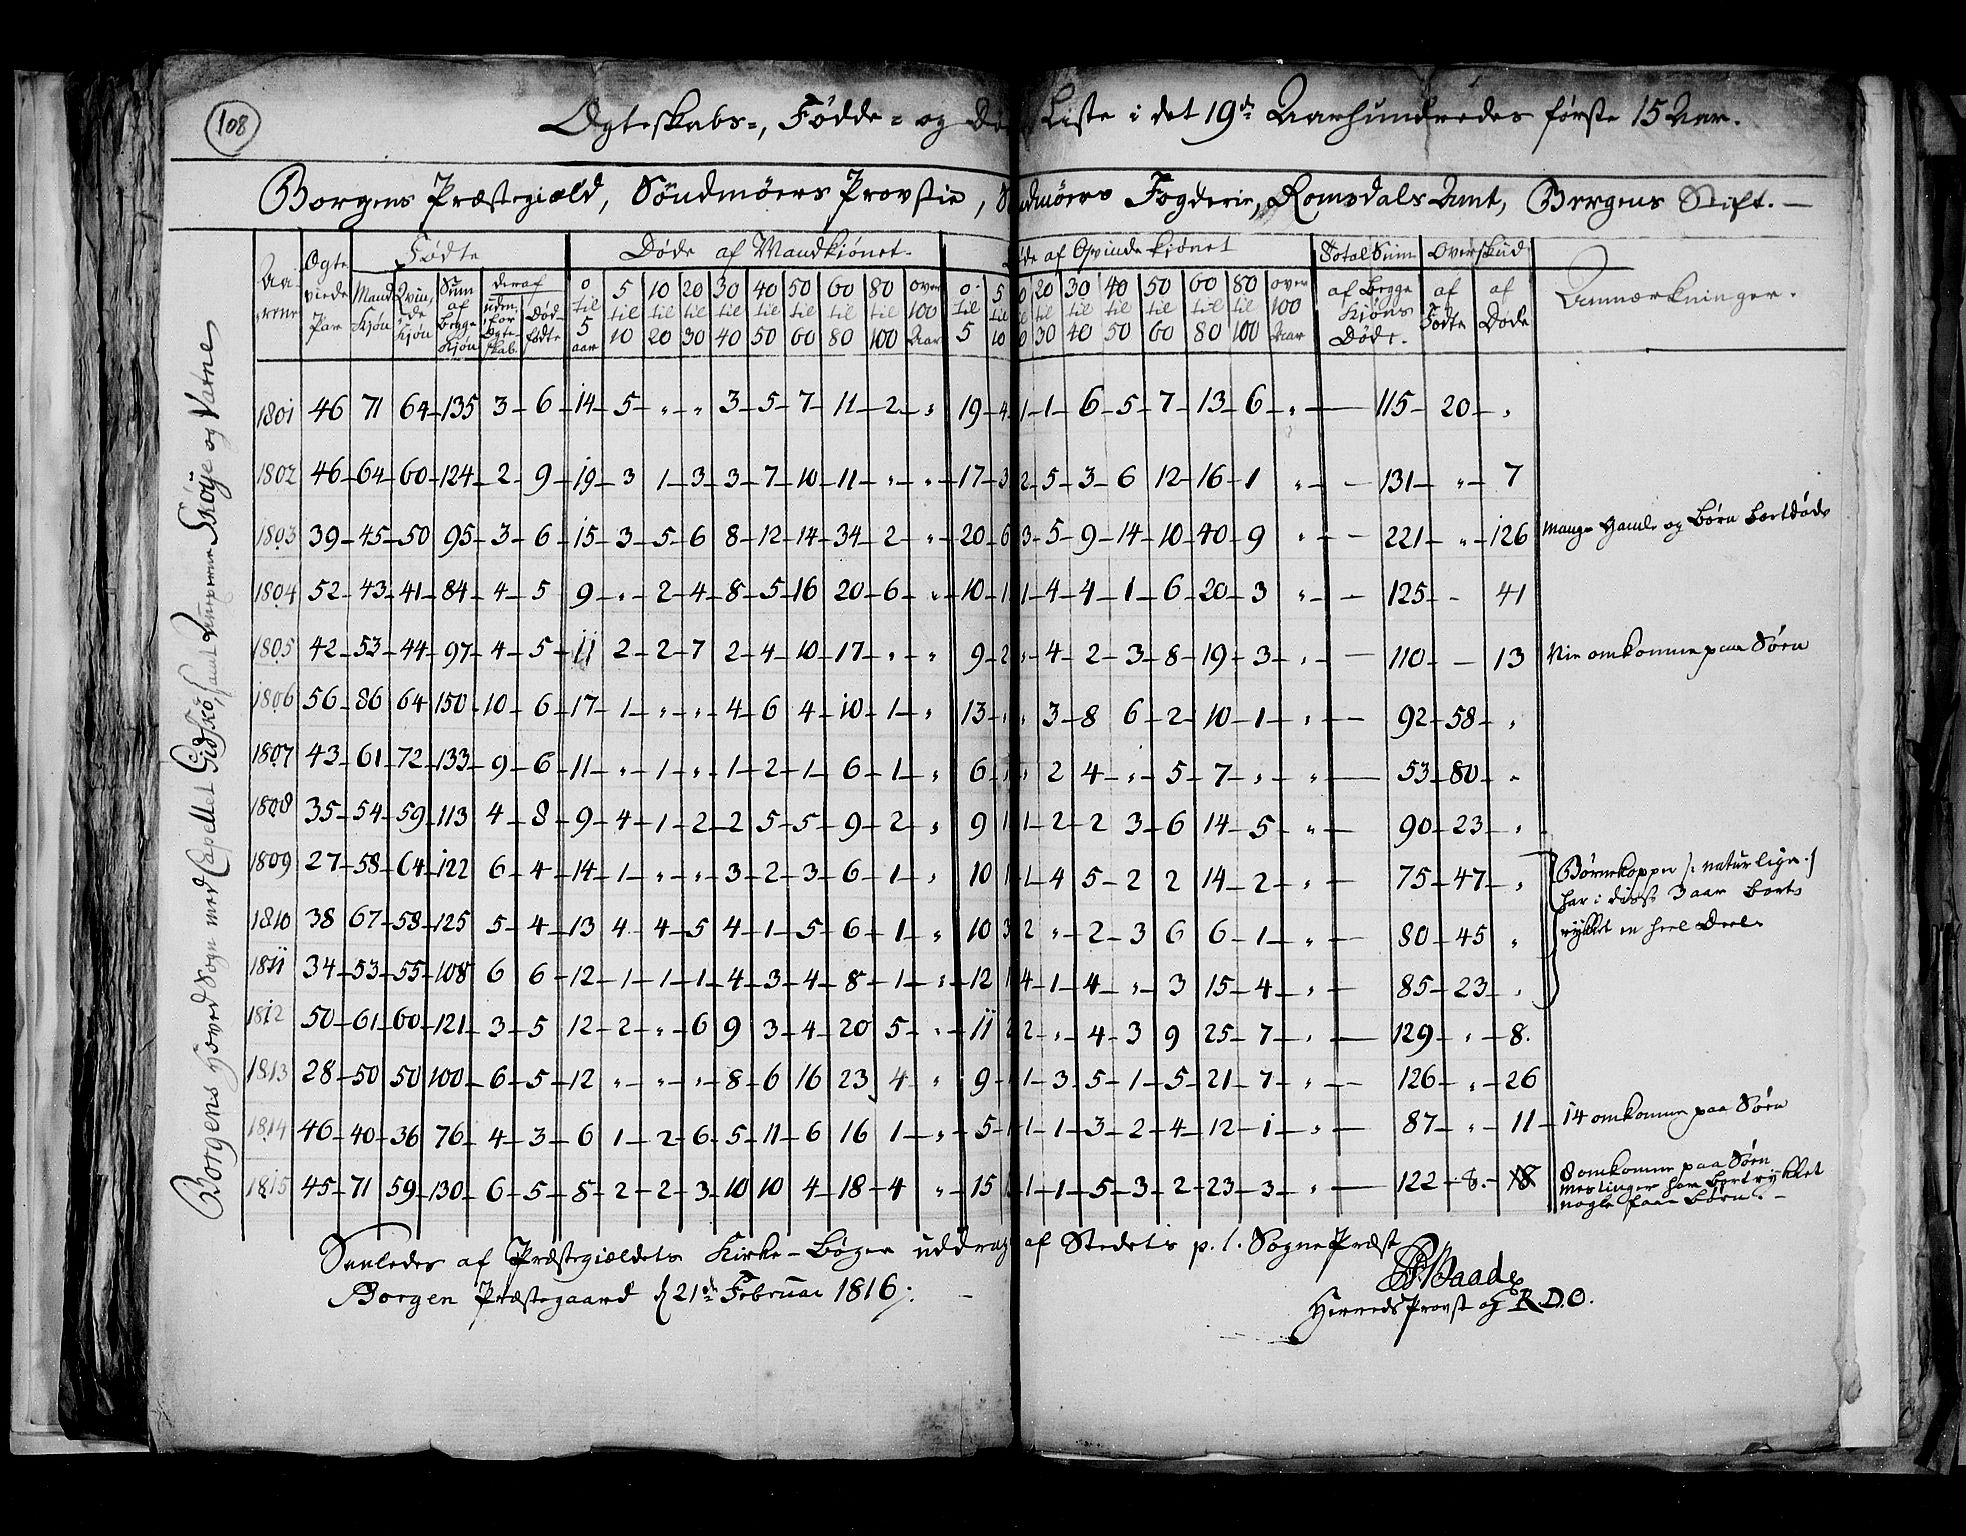 108
Ægteskabs-, Fødde- og Dø Liste i det 19de Aarhundredes første 15 Aar.
Borgens Præstegiæld, Søndmøers Provstie, Søndmøers Fogderie, Romsdals Amt, Bergens Stift.
Fødte Døde af Mandkiønet. Døde af Qvindekiønet Total Sum Overskud
Aarene Ægteviede Par Mandkjøn Qvindekjøn Sum af begge Kjøn deraf udenfor Ægteskab. Dødfødte 0 til 5 aar 5 til 10 10 til 20 20 til 30 30 til 40 40 til 50 50 til 60 60 til 80 80 til 100 over 100 Aar 0 til 5 5 til 10 20 til 30 30 til 40 40 til 50 50 til 60 60 til 80 80 til 100 over 100 Aar af begge Kjøns Døde. af Fødte af Døde Anmærkninger.
1801 46 71 64 135 3 6 14 5 " " 3 5 7 11 2 " 19 4 1 1 6 5 7 13 6 " 115 20 "
1802 46 64 60 124 2 9 19 3 1 3 3 7 10 11 " " 17 3 2 5 3 6 12 16 1 " 131 " 7
1803 39 45 50 95 3 6 15 3 5 6 8 12 14 34 2 " 20 6 3 5 9 14 10 40 9 " 221 " 126 Mange Gamle og Børn bortdøde
1804 52 43 41 84 4 5 9 " 2 4 8 5 16 20 6 " 10 1 1 4 4 1 6 20 3 " 125 - 41
1805 42 53 44 97 4 5 11 2 2 7 2 4 10 17 " " 9 2 " 4 2 3 8 19 3 " 110 - 13 Nie omkomne paa Søen
1806 56 86 64 150 10 6 17 1 " " 4 6 4 10 1 " 13 " " 3 8 6 2 10 1 " 92 58 "
1807 43 61 72 133 9 6 11 " 1 " 1 2 1 6 1 " 6 1 " 2 4 " 5 7 " " 53 80 "
1808 35 54 59 113 4 8 9 4 1 2 2 5 5 9 2 " 9 1 1 2 2 3 6 14 5 " 90 23 "
1809 27 58 64 122 6 4 14 1 " " 3 2 3 6 1 " 10 1 1 4 5 2 2 14 2 " 75 47 " Børnekopper /: naturlige :/
har i disse 3 aar bort-
1810 38 67 58 125 5 4 13 4 4 5 4 1 5 6 1 " 10 3 2 " 2 3 6 6 1 " 80 45 " rykket en heel Deel
1811 34 53 55 108 6 6 12 1 1 1 4 3 4 8 1 " 12 1 4 1 4 " 3 15 4 " 85 23 "
1812 50 61 60 121 3 5 12 2 " 6 9 3 4 20 5 " 11 2 2 " 4 3 9 25 7 " 129 " 8.
1813 28 50 50 100 6 5 12 " " " 8 6 16 23 4 " 9 1 1 3 5 1 5 21 7 " 126 " 26
1814 46 40 36 76 4 3 6 1 2 6 5 11 6 16 1 " 5 1 1 1 3 2 4 12 1 " 87 " 11 14 omkomne paa Søen
1815 45 71 59 130 6 5 8 2 2 3 10 10 4 18 4 " 15 1 1 5 3 2 23 3 " 122 8 8 omkomne paa Søen
Meslinger har bortrykket
nogle faae Børn.
Borgens Hoved Sogn med Capellet Giidske, samt Annexerne Skoije og Vatne
Saaledes af Præstegiældets Kirke-Bøger uddrag af Stedets p. t. SognePræst
Borgen Præstegaard d 21de Februar 1816
Herreds Provst og R.D.O.